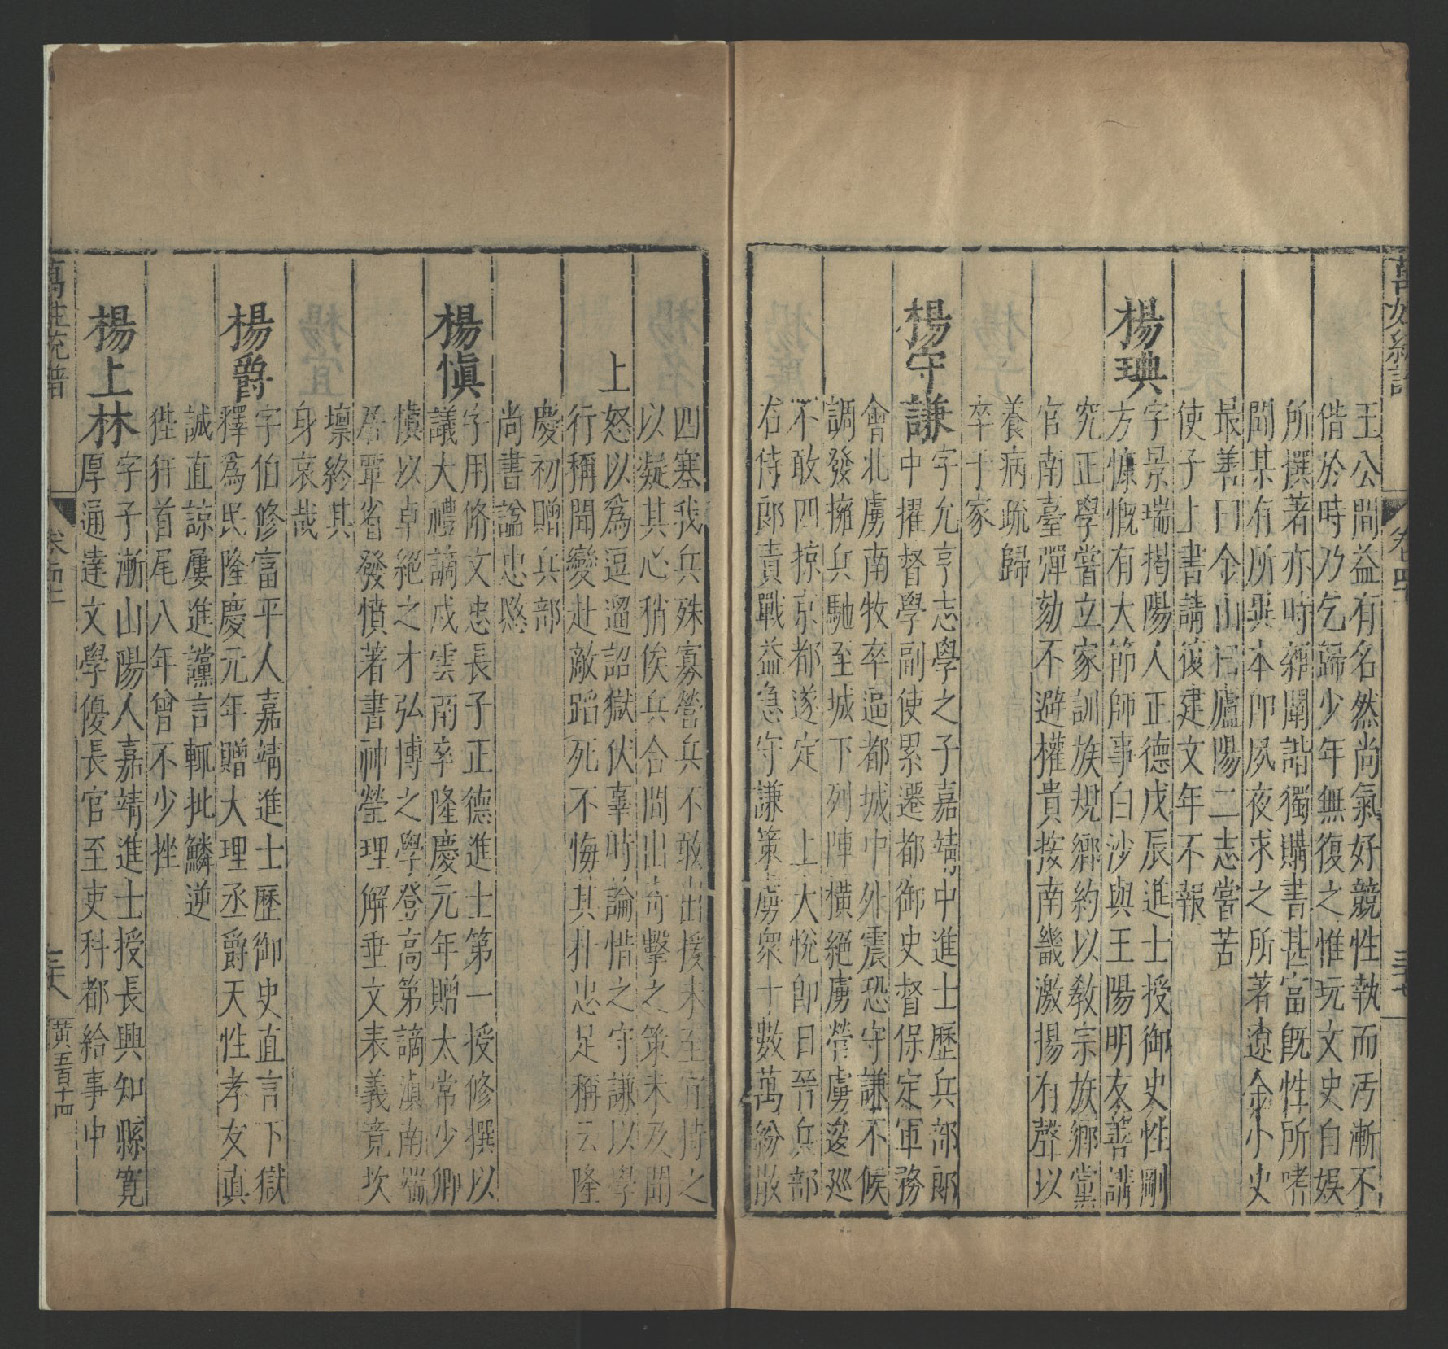 萬姓統譜
卷四十
三十七
王公間益有名然尚氣好競性執而汚漸不
偕於時乃乞歸少年無復之惟玩文史自娛
所撰著亦時維闡詣獨購書甚富既性所嗜
聞某有所異本即夙夜求之所著遼金小史
最善曰金山舊廬陽二志當苦
使子上書請復建文年不報
楊琠
字景瑞揭陽人正德戊辰進士授御史性剛
方慷慨有大節師事白沙與王陽明友善講
究正學當立家訓族規鄉約以敎宗族鄉黨
官南臺彈劾不避權貴按南畿激揚有聲以
養病疏歸
卒于家
楊守謙
字允亨志學之子嘉靖中進士歷兵部郎
中擢督學副使累遷都御史督保定軍務
會北虜南牧卒逼都城中外震恐守謙不候
調發擁兵馳至城下列陣橫絕虜營虜逡巡
不敢四掠京都遂定 上大悅即日晉兵部
右侍郎責戰益急守謙策虜衆十數萬紛散
四塞我兵殊寡營兵不敢出援未至宜持之
以疑其心稍俟兵合間出奇擊之策未及聞
上怒以爲逗遛詔獄伏辜時論惜之守謙以學
行稱聞變赴敵蹈死不悔其朴忠足稱云隆
慶初贈兵部
尚書諡忠愍
楊愼
字用脩文忠長子正德進士第一授修撰以
議大禮謫戍雲南卒隆慶元年贈太常少卿
愼以卓絕之才弘博之學登高第謫滇南端
居覃省發憤著書神瑩理解垂文表義竟坎
壈終其
身哀哉
楊爵
字伯修富平人嘉靖進士歷御史直言下獄
釋爲民隆慶元年贈大理丞爵天性孝友眞
誠直諒屢進讜言輒批鱗逆
狴犴首尾八年曾不少挫
楊上林
字子漸山陽人嘉靖進士授長興知縣寬
厚通達文學優長官至吏科都給事中
萬姓統譜
卷四十一
三十八
黃 五百十四